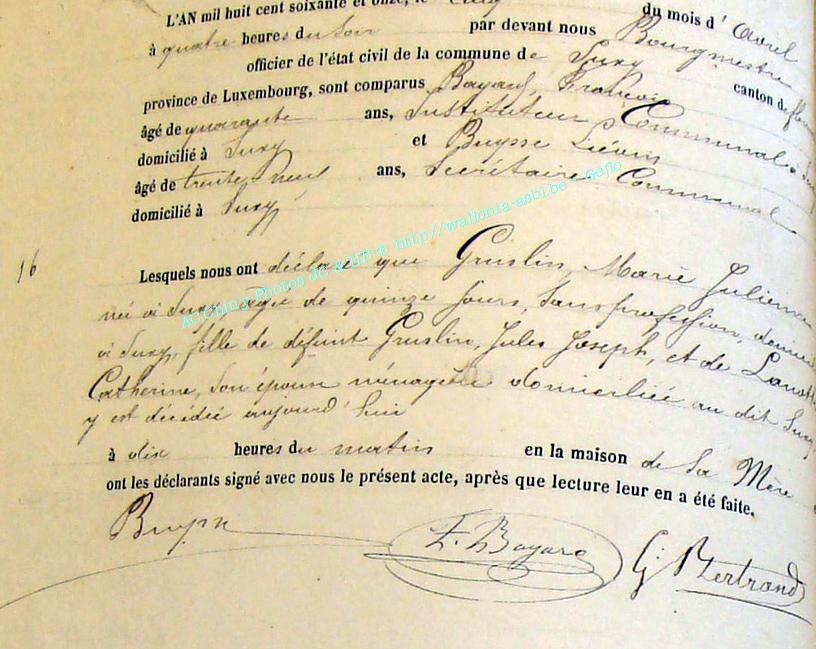 L'AN mil huit cent soixante et onze, le du mois d'Avril
à quatre heures du Soir par devant nous Bourgmestre
officier de l'état civil de la commune de Suxy canton de
province de Luxembourg, sont comparus Bayard, François
âgé de quarante ans, Instituteur Communal à
domicilié à Suxy et Buysse Liévin
âgé de trente neuf ans, Secrétaire Communal
domicilié à Suxy
16
Lesquels nous ont déclaré que Gruslin, Marie Julienne
née à Suxy âgée de quinze jours, Sans profession,
à Suxy, fille de défunt Gruslin, Jules Joseph, et de
Catherine, son épouse ménagère domiciliée au dit Suxy
y est décédée aujourd'hui
à dix heures du matin en la maison de Sa Mère
ont les déclarants signé avec nous le présent acte, après que lecture leur en a été faite.
Buysse F. Bayard G. Bertrand
http://wallonia-asbl.be - Geflo